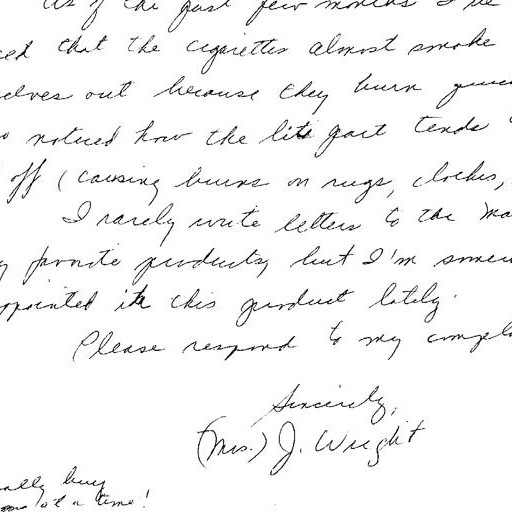 As of the past few months I've
that the cigarettes almost smoke
out because they burn
noticed how the lit part tends
off (causing burns on rugs, clothes,
I rarely write letters to the
favorite products, but I'm
in this product lately.
Please respond to my
Sincerely,
(Mrs.) J. Wright
buy
at a time!